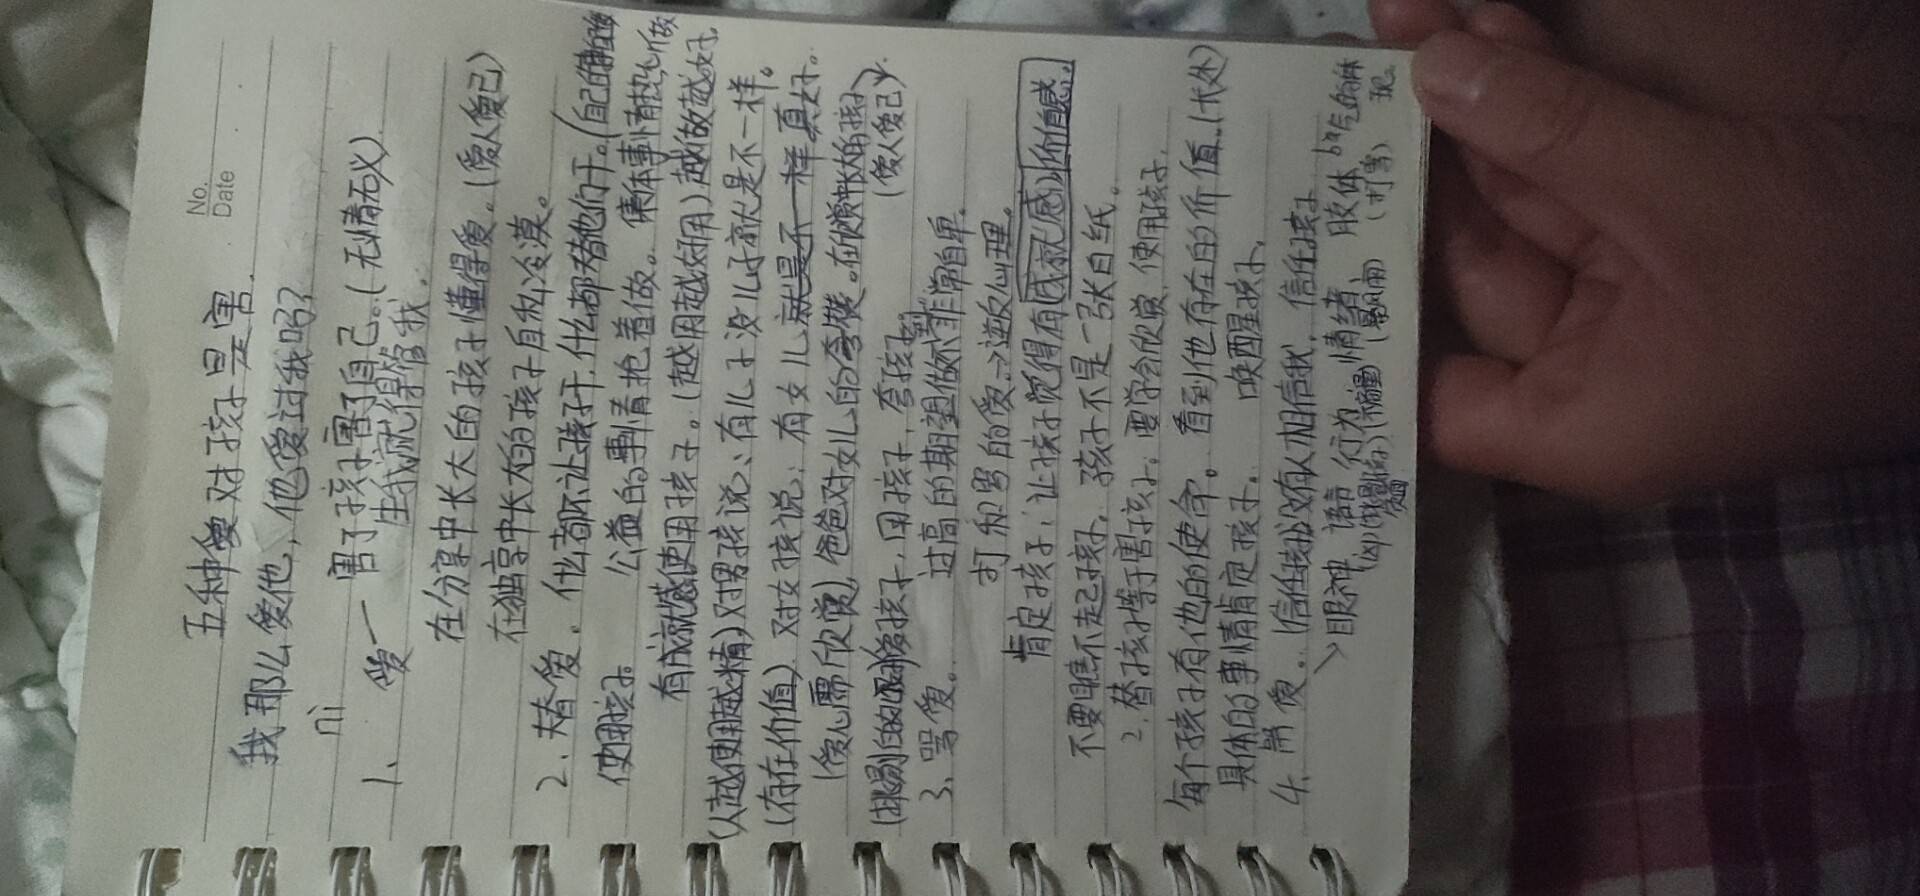 No.
Date
五种爱对孩子是害.
我那么爱他，他爱过我吗？
ni
1、爱 一 害了孩子害了自己。(无情无义)
生我就得管我.
在分享中长大的孩子懂得爱。(爱人爱己)
在独享中长大的孩子自私冷漠。
2、替爱。什么都不让孩子干,什么都替他们干。(自己的事
使用孩子。 公益的事情抢着做。集体事情热心做
有成就感使用孩子。(越用越好用)越做越好.
(人越使用越精)对男孩说:有儿子没儿子就是不一样。
(存在价值) 对女孩说:有女儿就是不一样真好。
(爱心需欣赏) 爸爸对女儿的夸赞。在欣赏中长大的孩子
爱孩子,用孩子,夸孩子 (爱人爱己)
3、骂爱。 过高的期望做不到非常自卑.
打和骂的爱→逆反心理.
肯定孩子:让孩子觉得有成就感价值感。
不要瞧不起孩子。孩子不是一张白纸。
2.替孩子等于害孩子.要学会欣赏,使用孩子.
每个孩子有他的使命。看到他存在的价值.(长处)
具体的事情肯定孩子。 唤醒孩子.
4、常爱。(信任孩子没有从相信我,信任孩子
→眼神 语言 行为 情绪, 肢体
(打雷)